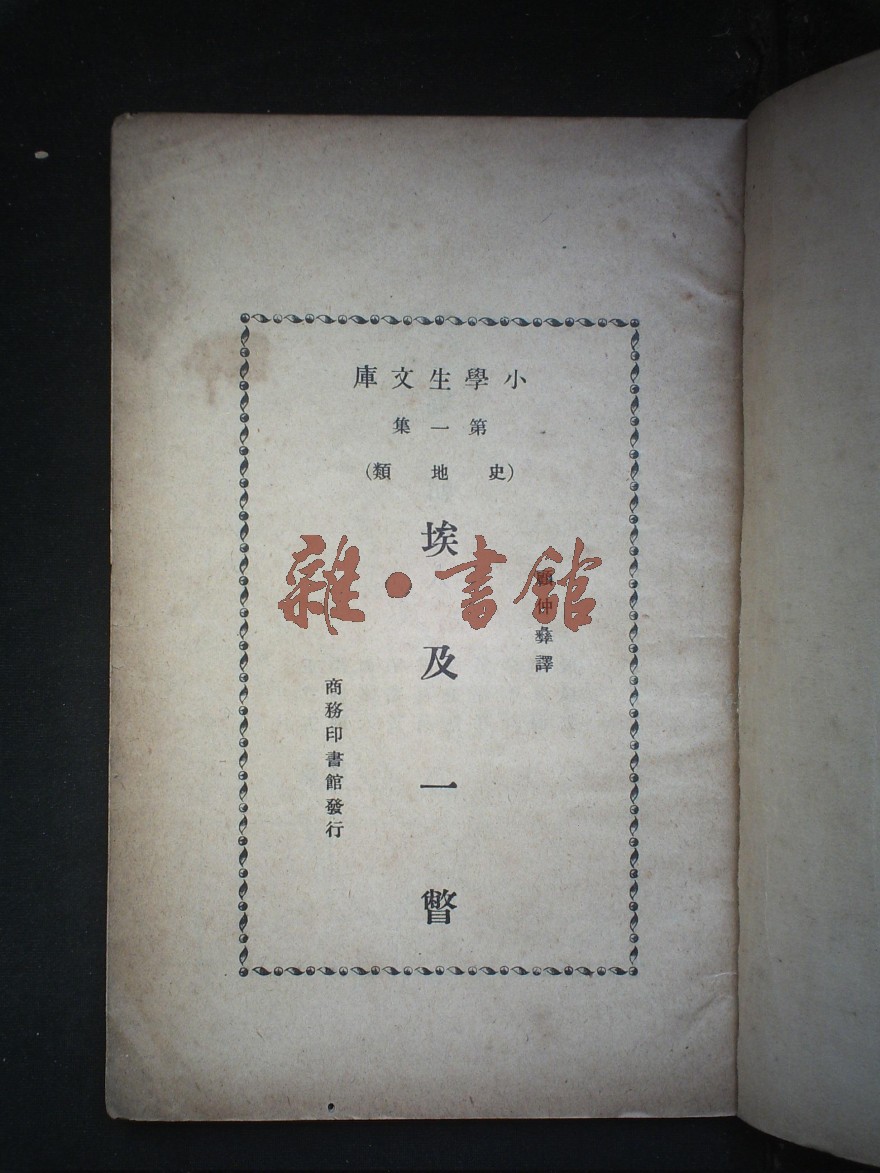 小學生文庫
第一集
(史地類)
顧仲彝譯
埃及一瞥
商務印書館發行
雜·書館